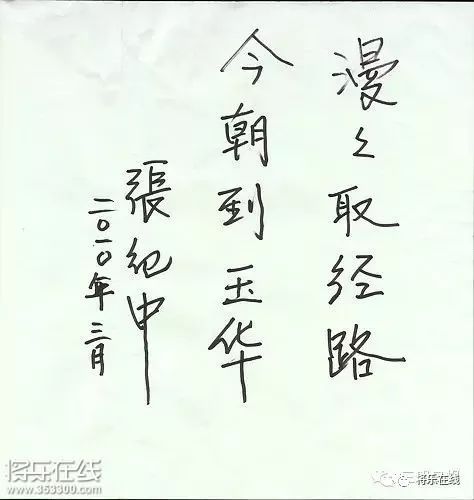 漫々取经路
今朝到玉华
張纪中
二〇一〇年三月
将乐在线
www.353300.com
将乐在线